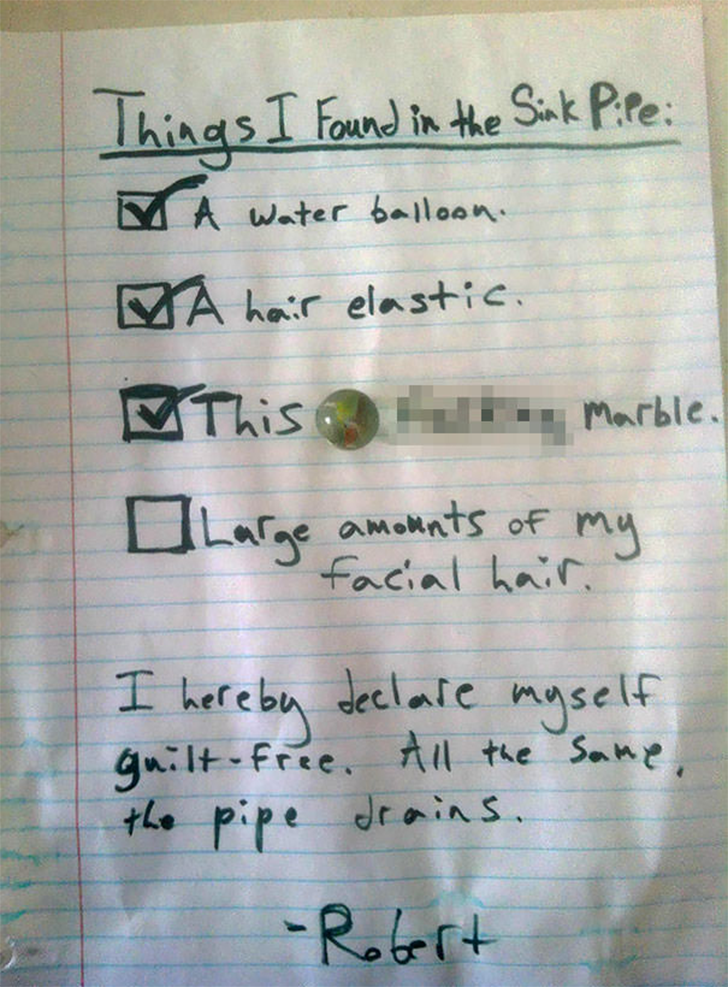 Things I Found in the Sink Pipe:
A water balloon.
A hair elastic.
This marble.
Large amounts of my
facial hair.
I hereby declare myself
guilt-free. All the same,
the pipe drains.
-Robert